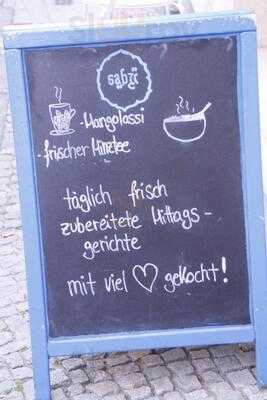 sabzi
- Mangolassi
- frischer Minztee
täglich frisch
zubereitete Mittags-
gerichte
mit viel ♡ gekocht!